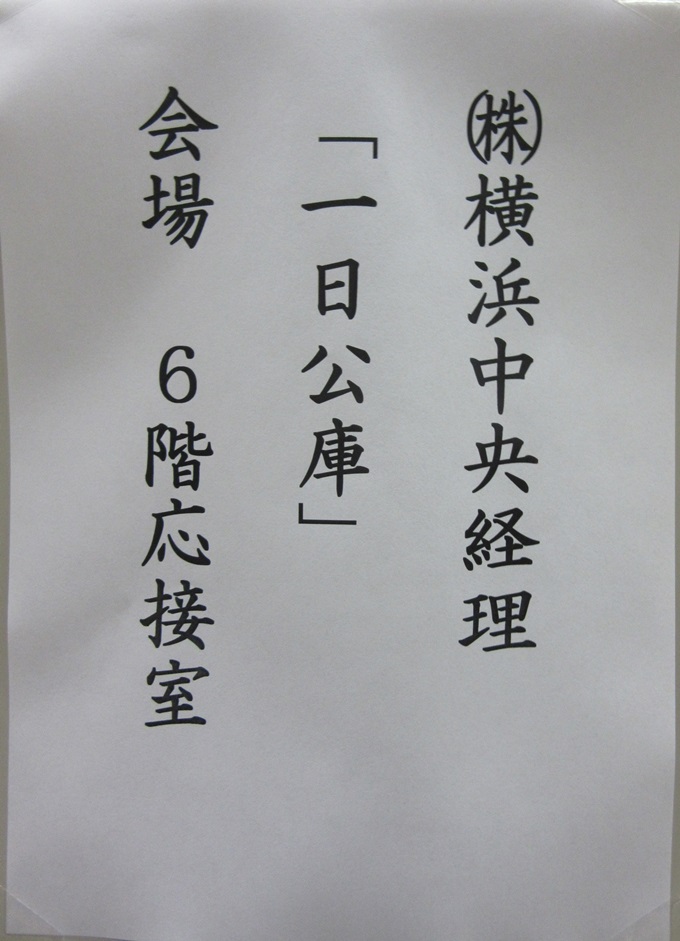 ㈱横浜中央経理
「一日公庫」
会場　６階応接室